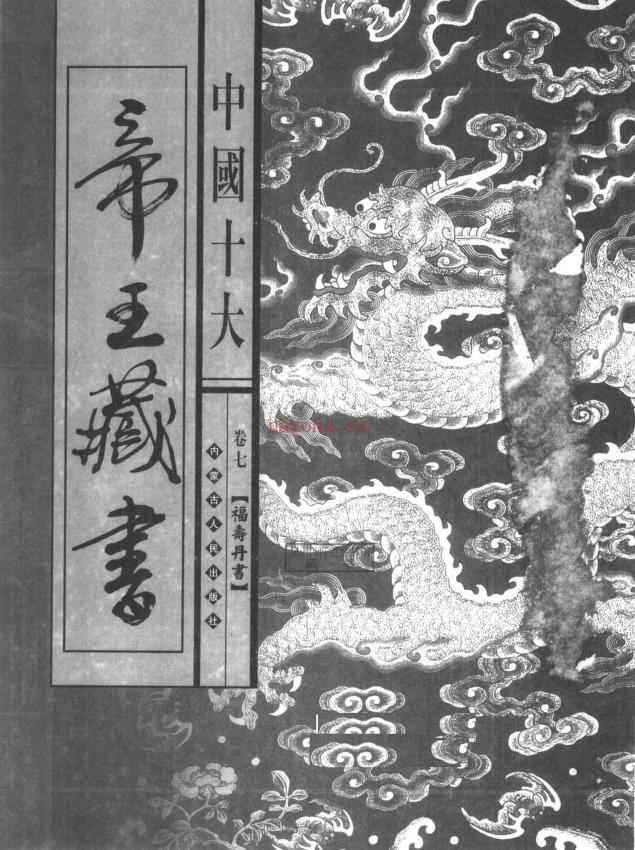 帝王藏書
中國十大
卷七【福壽丹書】
内蒙古人民出版社
nayona.cn